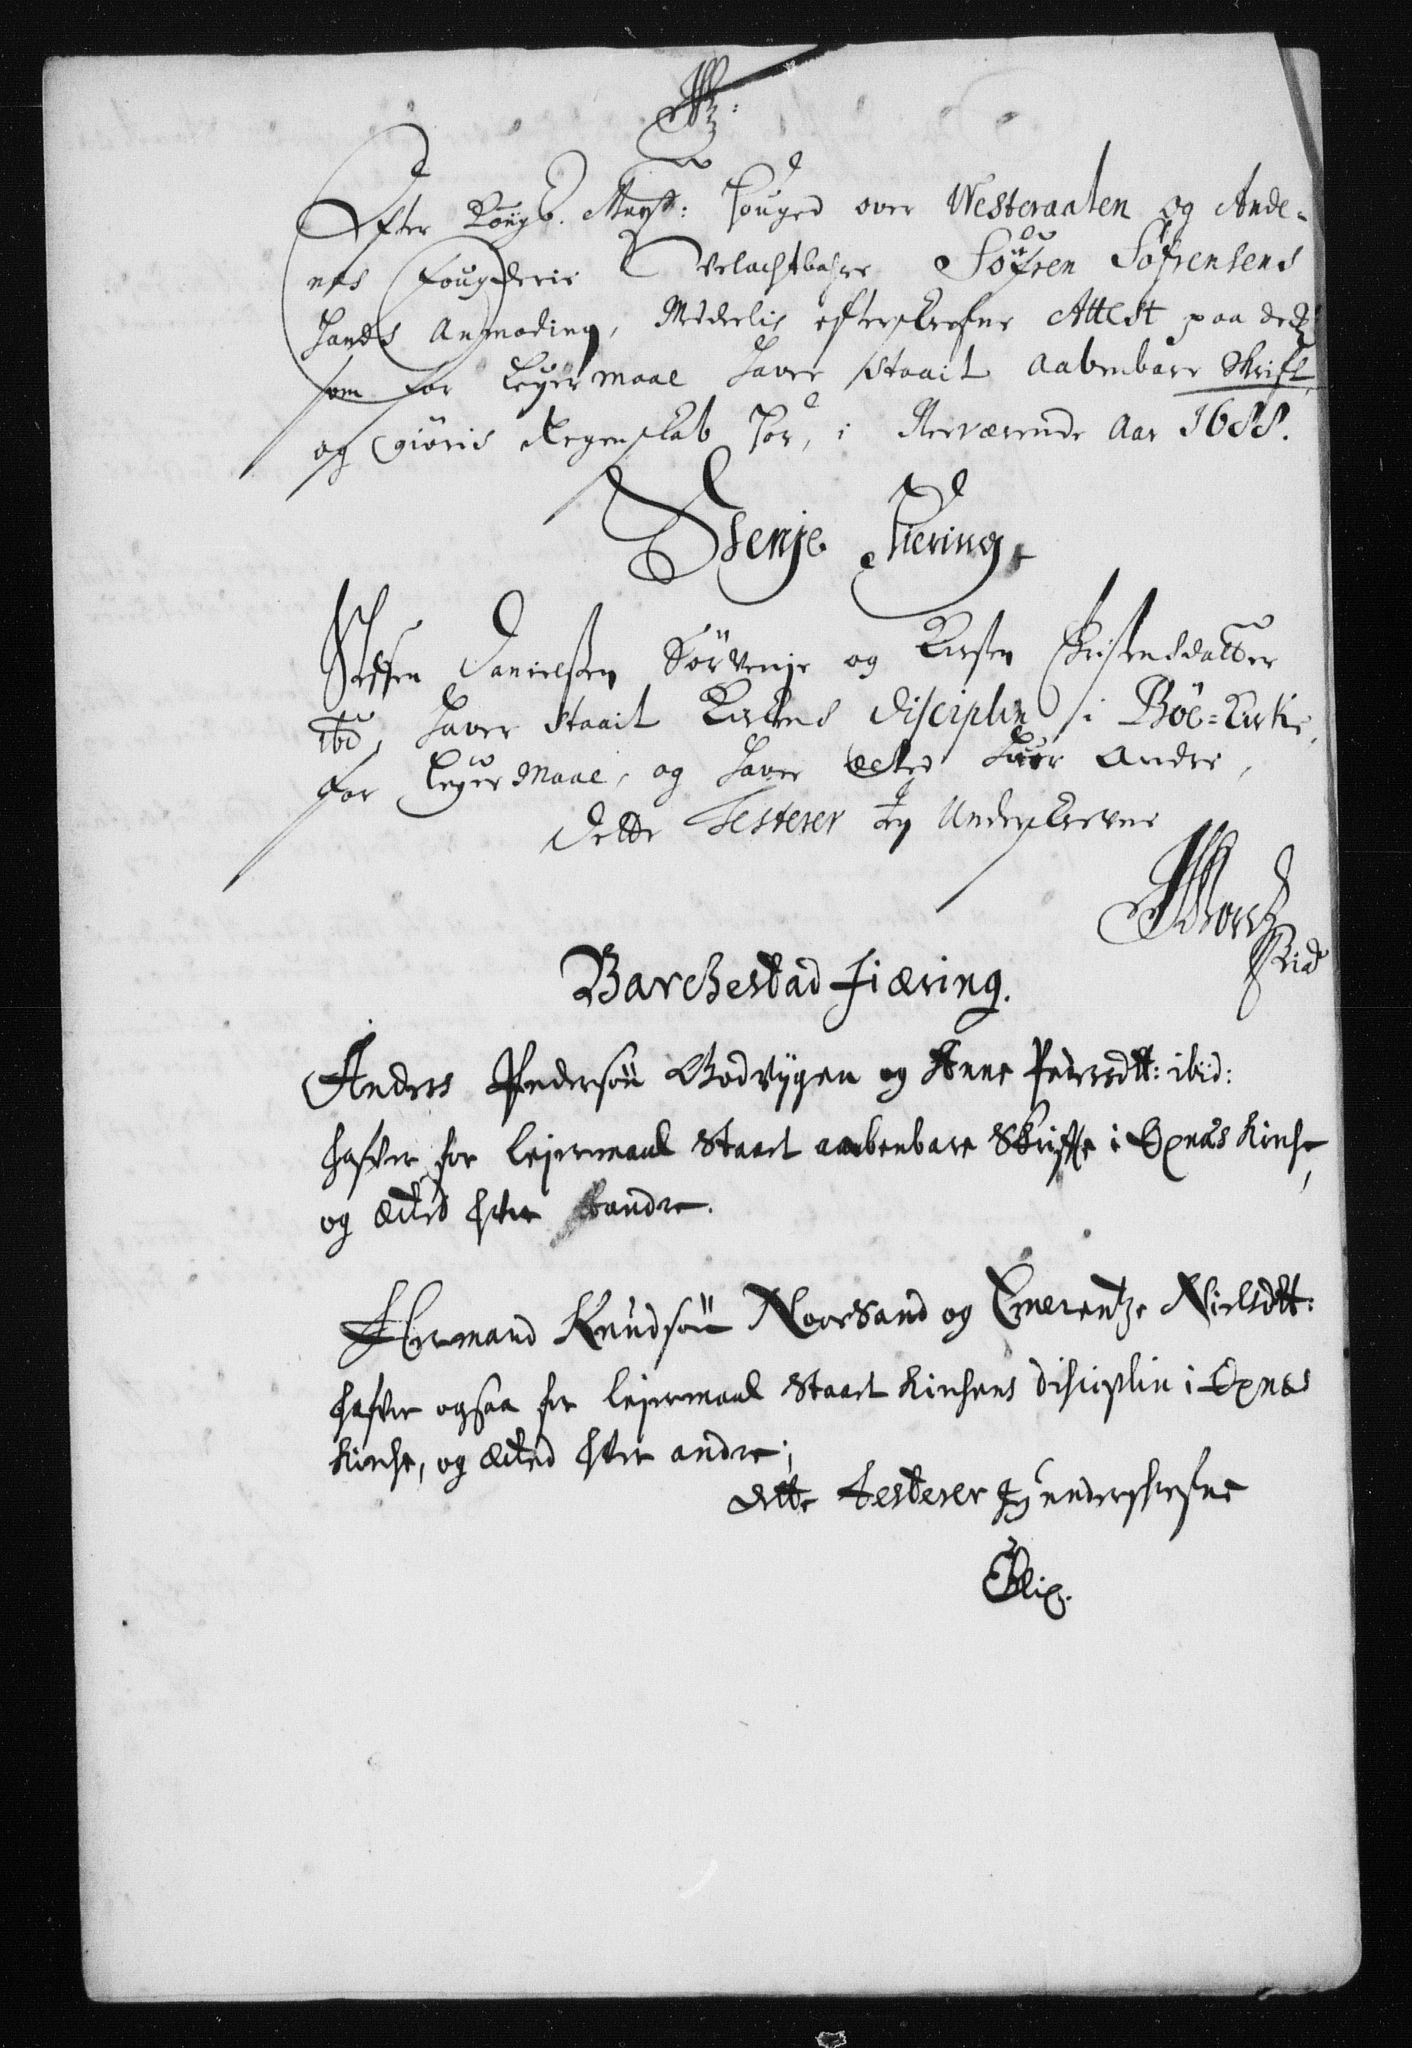 Efter Kongl. Mayst: Fouged over Westeraalen og Ande-
nes Fougderie Velachtbahre Søfren Søfrensens
hands Anmoding, Meddeelis efterskrefne Attest paa dend
som for Leyermaal haver staait aabenbare Skrift,
og giøris Regenskab for, i Nerværende Aar 1688.
Skenje Fiering,
Steffen Danielsen Sørvenje og Kirsten Christensdatter
ibid, haver staait Kirkens disciplin i Böe-Kirke,
for Leyermaal, og haver ected huer Andre,
Dette Testerer Jeg Underskrevne
Barchestad Fiæring.
Anders Pedersøn Godvygen og Anne Pedersdtt: ibid:
hafver for leyermaal Staaet aabenbare Skriffte i Øxnæs Kirche,
og ected hver andre.
Hermand Knudsøn Noorsand og Emerentze Nielsdtt:
hafver ogsaa for leyermaal Staaet Kirchens disciplin i Øxnes
Kirche, og ected hver andre;
dette testerer Jeg underskrefne
EBlix.